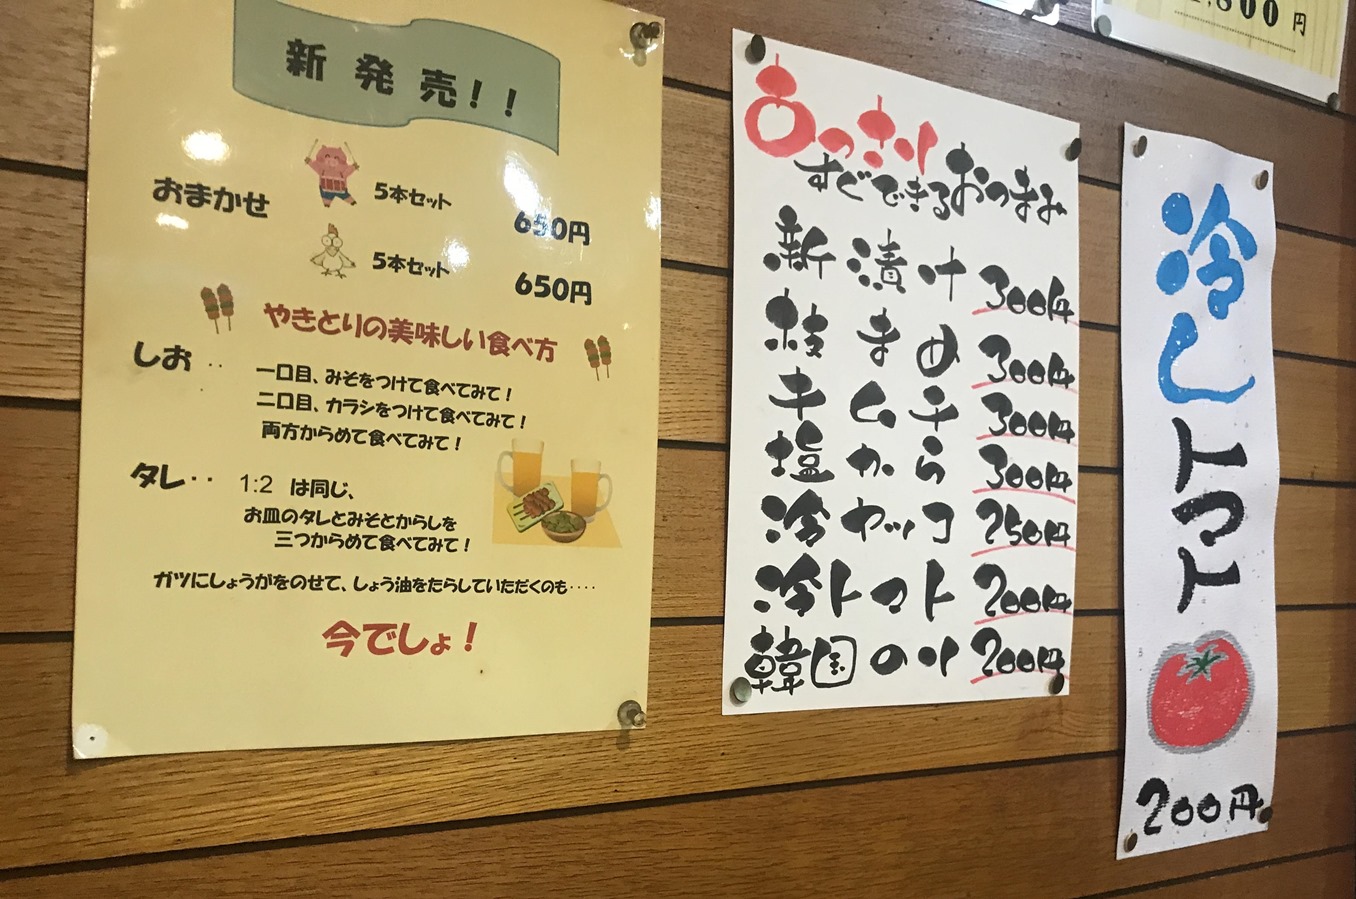 新発売！！
おまかせ 5本セット 650円
5本セット 650円
やきとりの美味しい食べ方
しお‥ 一口目、みそをつけて食べてみて！
二口目、カラシをつけて食べてみて！
両方からめて食べてみて！
タレ‥ 1:2 は同じ、
お皿のタレとみそとからしを
三つからめて食べてみて！
ガツにしょうがをのせて、しょう油をたらしていただくのも‥‥
今でしょ！
すぐできるおつまみ
新漬け 300円
枝まめ 300円
キムチ 300円
塩から 300円
冷ヤッコ 250円
冷トマト 200円
韓国のり 200円
800円
冷しトマト
200円